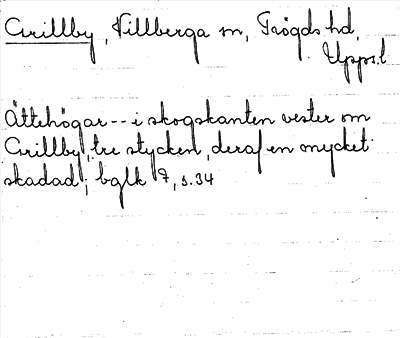 Grillby, Villberga sn, Trögds hd,
Upps.l
Ättehögar -- i skogskanten vester om
Grillby, tre stycken, deraf en mycket
skadad; bglk 7, s.34